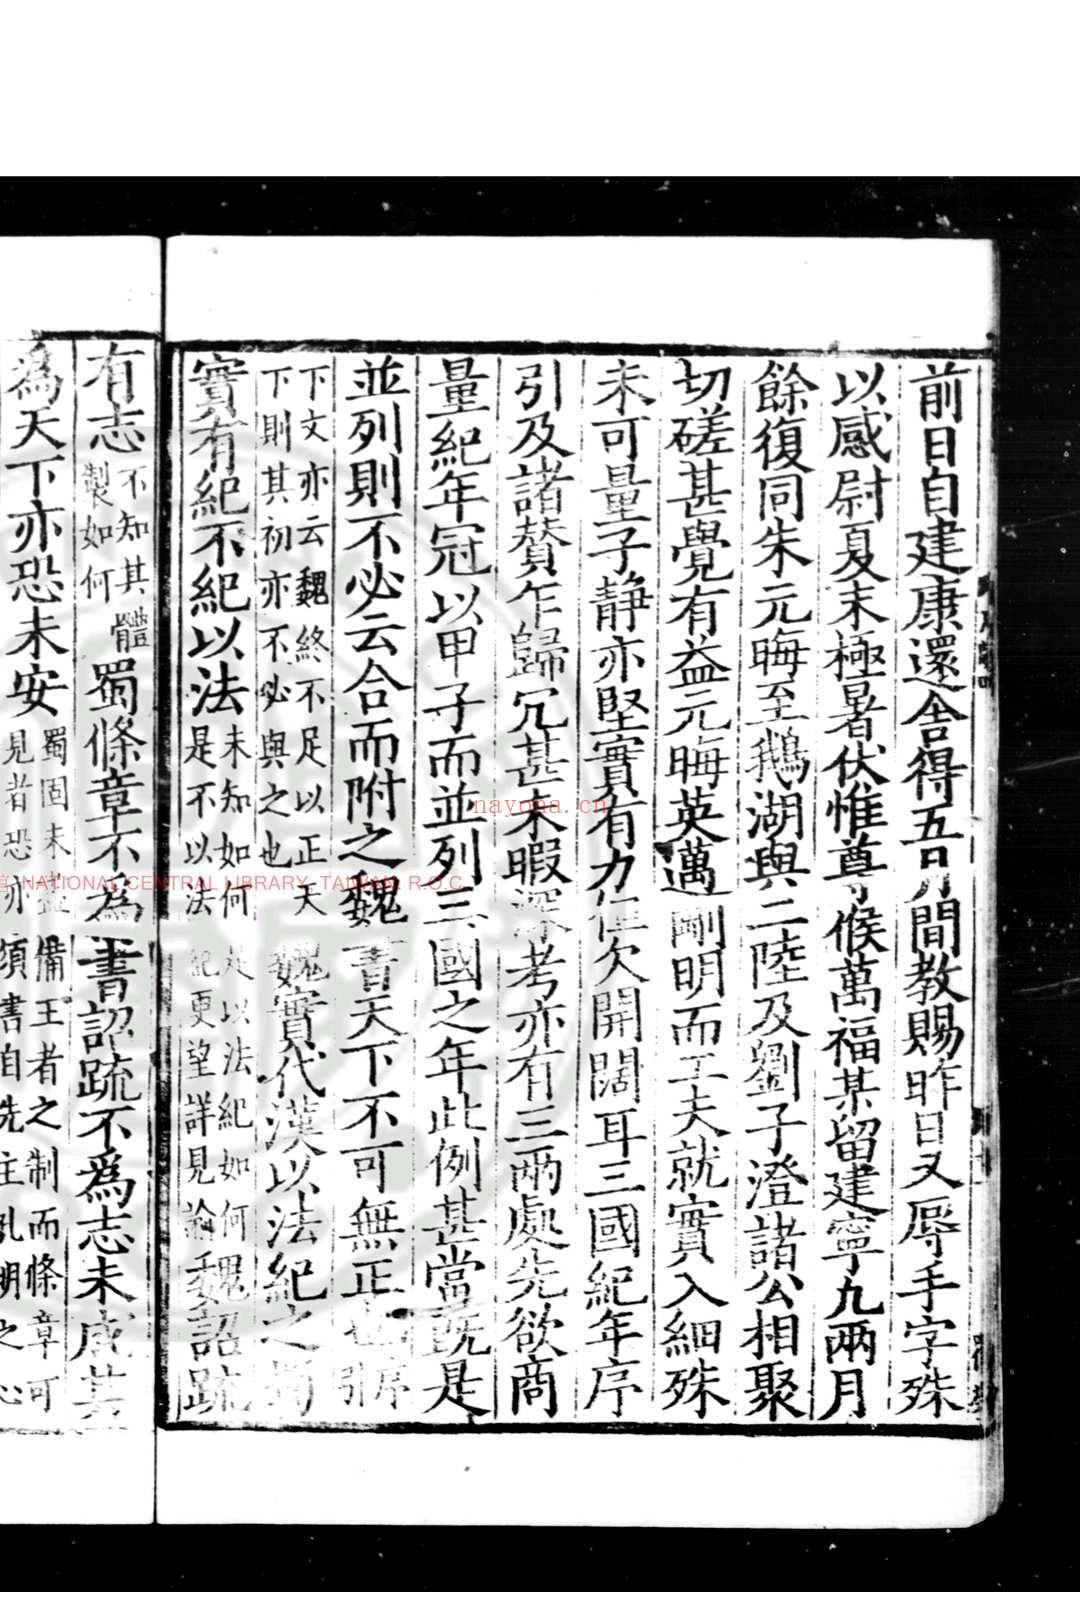 前日自建康還舍得五月間教賜昨日又辱手字殊
以感尉夏末極暑伏惟尊候萬福某留建寧九兩月
餘復同朱元晦至鵝湖與二陸及劉子澄諸公相聚
切磋甚覺有益元晦英邁剛明而工夫就實入細殊
未可量子靜亦堅實有力但欠開闊耳三國紀年序
引及諸贊乍歸冗甚未暇深考亦有三兩處先欲商
量紀年冠以甲子而並列三國之年此例甚當既是
並列則不必云合而附之魏書天下不可無正也序引
下文亦云魏終不足以正天
下則其初亦不必與之也魏實代漢以法紀之蜀
實有紀不紀以法未知如何是以法紀如何
是不以法紀更望詳見諭魏詔疏
有志不知其體
製如何蜀條章不為書詔疏不為志未成其
為天下亦恐未安蜀固未備王者之制而條章可
見者恐亦須書自先主孔明之心
NATIONAL CENTRAL LIBRARY, TAIWAN, R.O.C.
nayona.cn